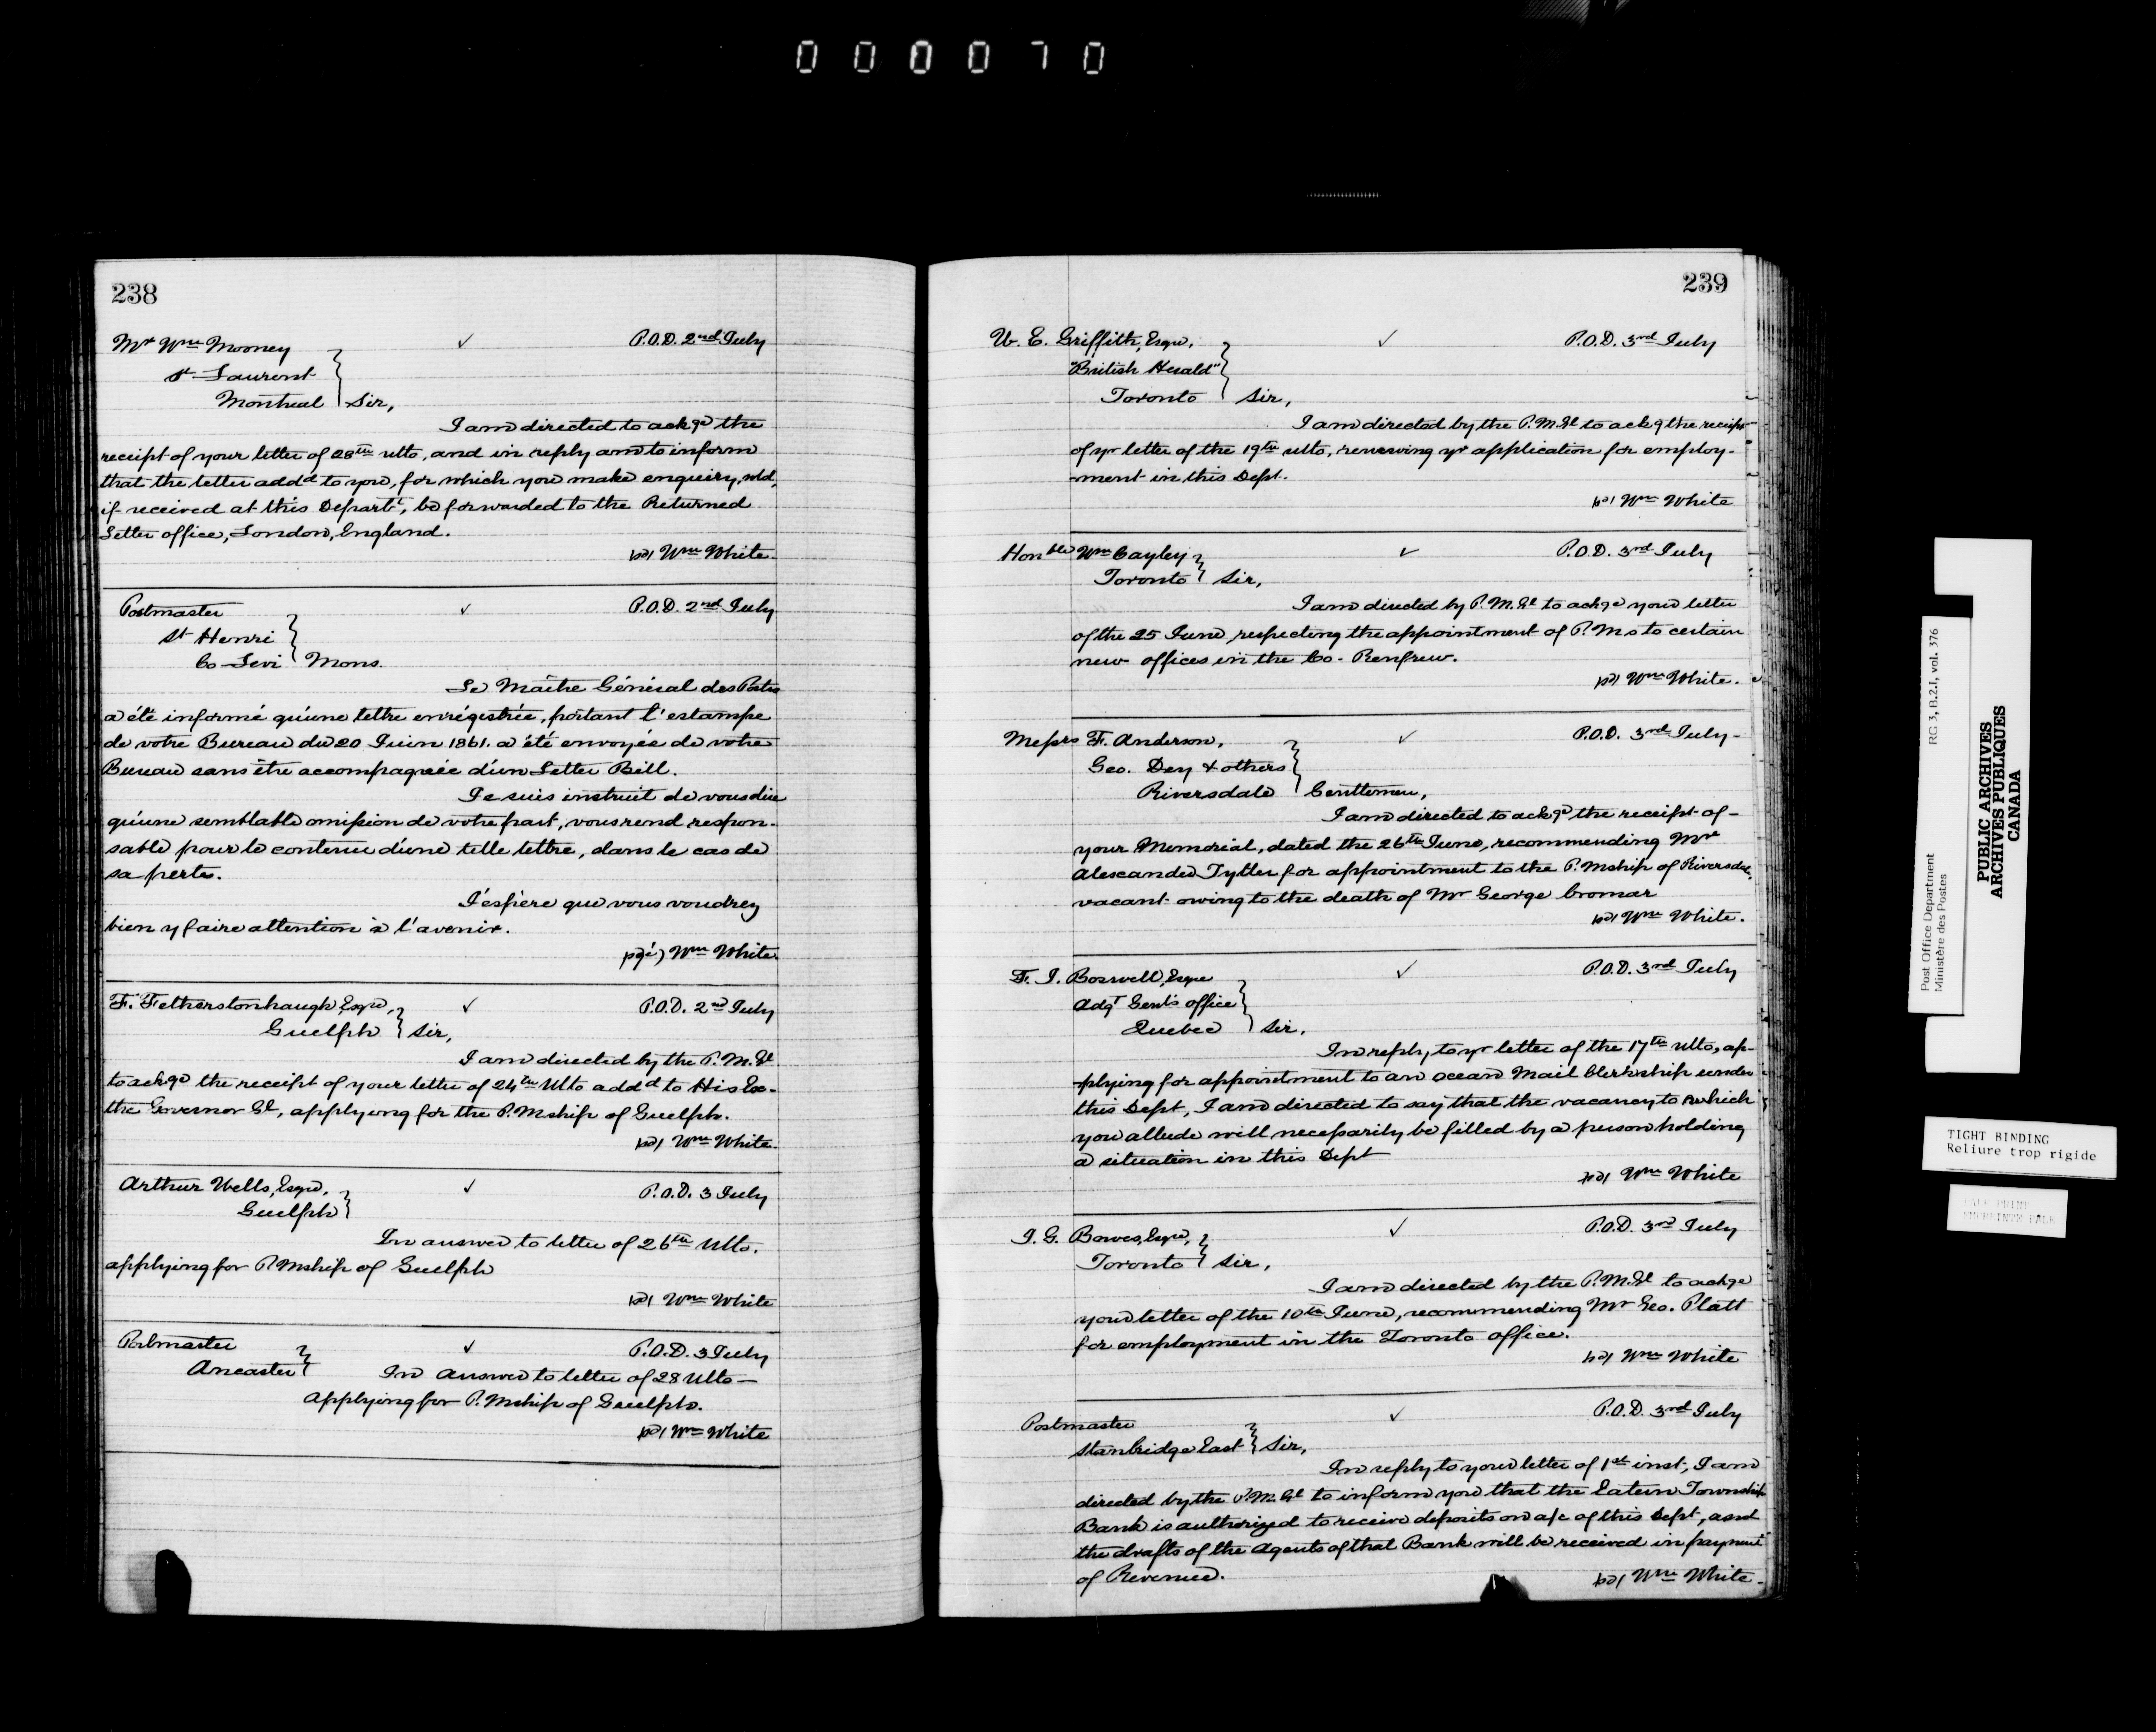 000070
238
Mr Wm Mooney ✓ P.O.D. 2nd July
St Laurent
Montreal } Sir,
I am directed to ackge the
receipt of your letter of 28th ulto, and in reply am to inform
that the letter addd to you, for which you make enquiry, wld,
if received at this Departt, be forwarded to the Returned
Letter office, London, England.
Wm White.
Postmaster ✓ P.O.D. 2nd July
St Henri
Co Levi } Mons.
Le Maître Général des Postes
a été informé qu'une lettre enrégistrée, portant l'estampe
de votre Bureau du 20 Juin 1861. a été envoyée de votre
Bureau sans être accompagnée d'un Letter Bill.
Je suis instruit de vous dire
qu'une semblable omission de votre part, vous rend respon-
sable pour le contenu d'une telle lettre, dans le cas de
sa perte.
J'espère que vous voudrez
bien y faire attention à l'avenir.
Wm White.
F. Fetherstonhaugh, Esqre, ✓ P.O.D. 2nd July
Guelph } Sir,
I am directed by the P.M.Gl
to ackge the receipt of your letter of 24th Ulto addd to His Exc-
the Governor Gl, applying for the P.Mship of Guelph.
Wm White.
Arthur Wells, Esqre, ✓ P.O.D. 3 July
Guelph }
In answer to letter of 26th Ulto.
applying for P.Mship of Guelph
Wm White
Postmaster ✓ P.O.D. 3 July
Ancaster } In answer to letter of 28 Ulto—
applying for P.Mship of Guelph.
Wm White
239
W. E. Griffith, Esqre, ✓ P.O.D. 3rd July
"British Herald"
Toronto } Sir,
I am directed by the P.M.Gl to ackge the receipt
of yr letter of the 19th ulto, renewing yr application for employ-
-ment in this Dept.
Wm White
Honble Wm Cayley ✓ P.O.D. 3rd July
Toronto } Sir,
I am directed by P.M.Gl to ackge your letter
of the 25 June, respecting the appointment of P.Ms to certain
new offices in the Co. Renfrew.
Wm White.
Messrs F. Anderson, ✓ P.O.D. 3rd July-
Geo. Dey & others
Riversdale } Genttemen,
I am directed to ackge the receipt of-
your Memorial, dated the 26th June, recommending Mr
Alexander Tytler for appointment to the P.Mship of Riversdale,
vacant owing to the death of Mr George Cromar
Wm White.
F. J. Boswell, Esqre ✓ P.O.D. 3rd July
Adjt Genl's office
Quebec } Sir.
In reply to yr letter of the 17th ulto, ap-
-plying for appointment to an Ocean Mail Clerkship under
this Dept, I am directed to say that the vacancy to which
you allude will necessarily be filled by a person holding
a situation in this Dept
Wm White
J. G. Bowes, Esqre, ✓ P.O.D. 3rd July
Toronto } Sir,
I am directed by the P.M.Gl to ackge
your letter of the 10th June, recommending Mr Geo. Platt
for employment in the Toronto office.
Wm White
Postmaster ✓ P.O.D. 3rd July
Stanbridge East } Sir,
In reply to your letter of 1st inst, I am
directed by the P.M.Gl to inform you that the Eatern Township
Bank is authorized to receive deposits on a/c of this Dept, and
the drafts of the Agents of that Bank will be received in payment
of Revenue.
Wm White.
Post Office Department RG 3, B.2.1, vol. 376
Ministère des Postes
PUBLIC ARCHIVES
ARCHIVES PUBLIQUES
CANADA
TIGHT BINDING
Reliure trop rigide
PALE PRINT